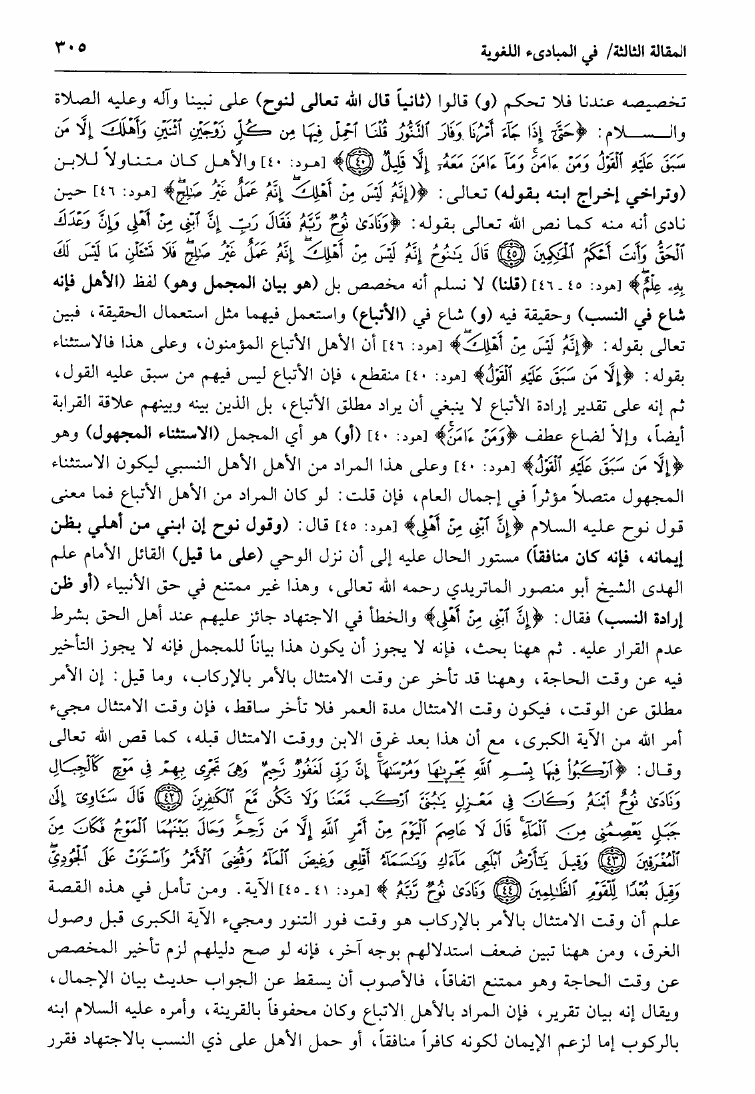 المقالة الثالثة/ في المبادىء اللغوية ٣٠٥
تخصيصه عندنا فلا تحكم (و) قالوا (ثانياً قال الله تعالى لنوح) على نبينا وآله وعليه الصلاة
والـسـلام: ﴿حَتَّىٰٓ إِذَا جَآءَ أَمْرُنَا وَفَارَ ٱلتَّنُّورُ قُلْنَا ٱحْمِلْ فِيهَا مِن كُلٍّ زَوْجَيْنِ ٱثْنَيْنِ وَأَهْلَكَ إِلَّا مَن
سَبَقَ عَلَيْهِ ٱلْقَوْلُ وَمَنْ ءَامَنَۚ وَمَآ ءَامَنَ مَعَهُۥٓ إِلَّا قَلِيلٌ ﴿٤٠﴾﴾ [هود: ٤٠] والأهل كان متناولاً للابن
(وتراخي إخراج ابنه بقوله) تعالى: ﴿(إِنَّهُۥ لَيْسَ مِنْ أَهْلِكَۖ إِنَّهُۥ عَمَلٌ غَيْرُ صَٰلِحٍۖ)﴾ [هود: ٤٦] حين
نادى أنه منه كما نص الله تعالى بقوله: ﴿وَنَادَىٰ نُوحٌ رَّبَّهُۥ فَقَالَ رَبِّ إِنَّ ٱبْنِى مِنْ أَهْلِى وَإِنَّ وَعْدَكَ
ٱلْحَقُّ وَأَنتَ أَحْكَمُ ٱلْحَٰكِمِينَ ﴿٤٥﴾ قَالَ يَٰنُوحُ إِنَّهُۥ لَيْسَ مِنْ أَهْلِكَۖ إِنَّهُۥ عَمَلٌ غَيْرُ صَٰلِحٍۖ فَلَا تَسْـَٔلْنِ مَا لَيْسَ لَكَ
بِهِۦ عِلْمٌۖ﴾ [هود: ٤٥ ـ ٤٦] (قلنا) لا نسلم أنه مخصص بل (هو بيان المجمل وهو) لفظ (الأهل فإنه
شاع في النسب) وحقيقة فيه (و) شاع في (الأتباع) واستعمل فيهما مثل استعمال الحقيقة، فبين
تعالى بقوله: ﴿إِنَّهُۥ لَيْسَ مِنْ أَهْلِكَۖ﴾ [هود: ٤٦] أن الأهل الأتباع المؤمنون، وعلى هذا فالاستثناء
بقوله: ﴿إِلَّا مَن سَبَقَ عَلَيْهِ ٱلْقَوْلُ﴾ [هود: ٤٠] منقطع، فإن الأتباع ليس فيهم من سبق عليه القول،
ثم إنه على تقدير إرادة الأتباع لا ينبغي أن يراد مطلق الأتباع، بل الذين بينه وبينهم علاقة القرابة
أيضاً، وإلاّ لضاع عطف ﴿وَمَنْ ءَامَنَۚ﴾ [هود: ٤٠] (أو) هو أي المجمل (الاستثناء المجهول) وهو
﴿إِلَّا مَن سَبَقَ عَلَيْهِ ٱلْقَوْلُ﴾ [هود: ٤٠] وعلى هذا المراد من الأهل الأهل النسبي ليكون الاستثناء
المجهول متصلاً مؤثراً في إجمال العام، فإن قلت: لو كان المراد من الأهل الأتباع فما معنى
قول نوح عليه السلام ﴿إِنَّ ٱبْنِى مِنْ أَهْلِى﴾ [هود: ٤٥] قال: (وقول نوح إن ابني من أهلي بظن
إيمانه، فإنه كان منافقاً) مستور الحال عليه إلى أن نزل الوحي (على ما قيل) القائل الأمام علم
الهدى الشيخ أبو منصور الماتريدي رحمه الله تعالى، وهذا غير ممتنع في حق الأنبياء (أو ظن
إرادة النسب) فقال: ﴿إِنَّ ٱبْنِى مِنْ أَهْلِى﴾ والخطأ في الاجتهاد جائز عليهم عند أهل الحق بشرط
عدم القرار عليه. ثم ههنا بحث، فإنه لا يجوز أن يكون هذا بياناً للمجمل فإنه لا يجوز التأخير
فيه عن وقت الحاجة، وههنا قد تأخر عن وقت الامتثال بالأمر بالإركاب، وما قيل: إن الأمر
مطلق عن الوقت، فيكون وقت الامتثال مدة العمر فلا تأخر ساقط، فإن وقت الامتثال مجيء
أمر الله من الآية الكبرى، مع أن هذا بعد غرق الابن ووقت الامتثال قبله، كما قص الله تعالى
وقال: ﴿ٱرْكَبُوا۟ فِيهَا بِسْمِ ٱللَّهِ مَجْر۪ىٰهَا وَمُرْسَىٰهَآۚ إِنَّ رَبِّى لَغَفُورٌ رَّحِيمٌ وَهِىَ تَجْرِى بِهِمْ فِى مَوْجٍ كَٱلْجِبَالِ
وَنَادَىٰ نُوحٌ ٱبْنَهُۥ وَكَانَ فِى مَعْزِلٍ يَٰبُنَىَّ ٱرْكَب مَّعَنَا وَلَا تَكُن مَّعَ ٱلْكَٰفِرِينَ ﴿٤٢﴾ قَالَ سَـَٔاوِىٓ إِلَىٰ
جَبَلٍ يَعْصِمُنِى مِنَ ٱلْمَآءِۚ قَالَ لَا عَاصِمَ ٱلْيَوْمَ مِنْ أَمْرِ ٱللَّهِ إِلَّا مَن رَّحِمَۚ وَحَالَ بَيْنَهُمَا ٱلْمَوْجُ فَكَانَ مِنَ
ٱلْمُغْرَقِينَ ﴿٤٣﴾ وَقِيلَ يَٰٓأَرْضُ ٱبْلَعِى مَآءَكِ وَيَٰسَمَآءُ أَقْلِعِى وَغِيضَ ٱلْمَآءُ وَقُضِىَ ٱلْأَمْرُ وَٱسْتَوَتْ عَلَى ٱلْجُودِىِّۖ
وَقِيلَ بُعْدًا لِّلْقَوْمِ ٱلظَّٰلِمِينَ ﴿٤٤﴾ وَنَادَىٰ نُوحٌ رَّبَّهُۥ﴾ [هود: ٤١ ـ ٤٥] الآية. ومن تأمل في هذه القصة
علم أن وقت الامتثال بالأمر بالإركاب هو وقت فور التنور ومجيء الآية الكبرى قبل وصول
الغرق، ومن ههنا تبين ضعف استدلالهم بوجه آخر، فإنه لو صح دليلهم لزم تأخير المخصص
عن وقت الحاجة وهو ممتنع اتفاقاً، فالأصوب أن يسقط عن الجواب حديث بيان الإجمال،
ويقال إنه بيان تقرير، فإن المراد بالأهل الاتباع وكان محفوفاً بالقرينة، وأمره عليه السلام ابنه
بالركوب إما لزعم الإيمان لكونه كافراً منافقاً، أو حمل الأهل على ذي النسب بالاجتهاد فقرر